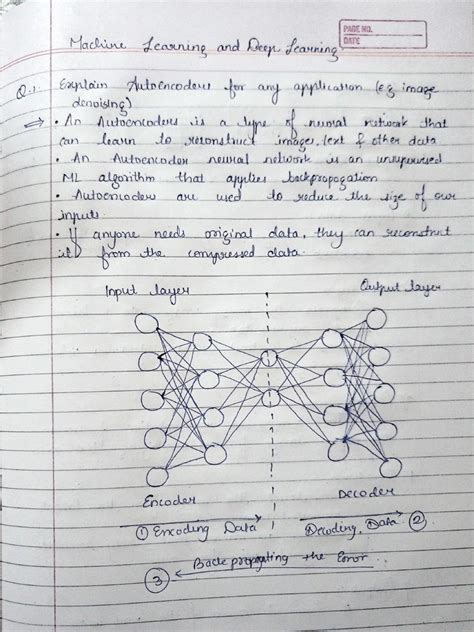 PAGE NO.
DATE
Machine Learning and Deep Learning
Q.1 Explain Autoencoders for any application (e.g image
denoising)
⇒ • An Autoencoders is a type of neural network that
can learn to reconstruct images, text & other data
• An Autoencoder neural network is an unsupervised
ML algorithm that applies backpropagation
• Autoencoders are used to reduce the size of our
inputs
• If anyone needs original data, they can reconstruct
it from the compressed data.
Input layer
Output layer
Encoder
Decoder
① Encoding Data
Decoding Data ②
③ Backpropagating the Error